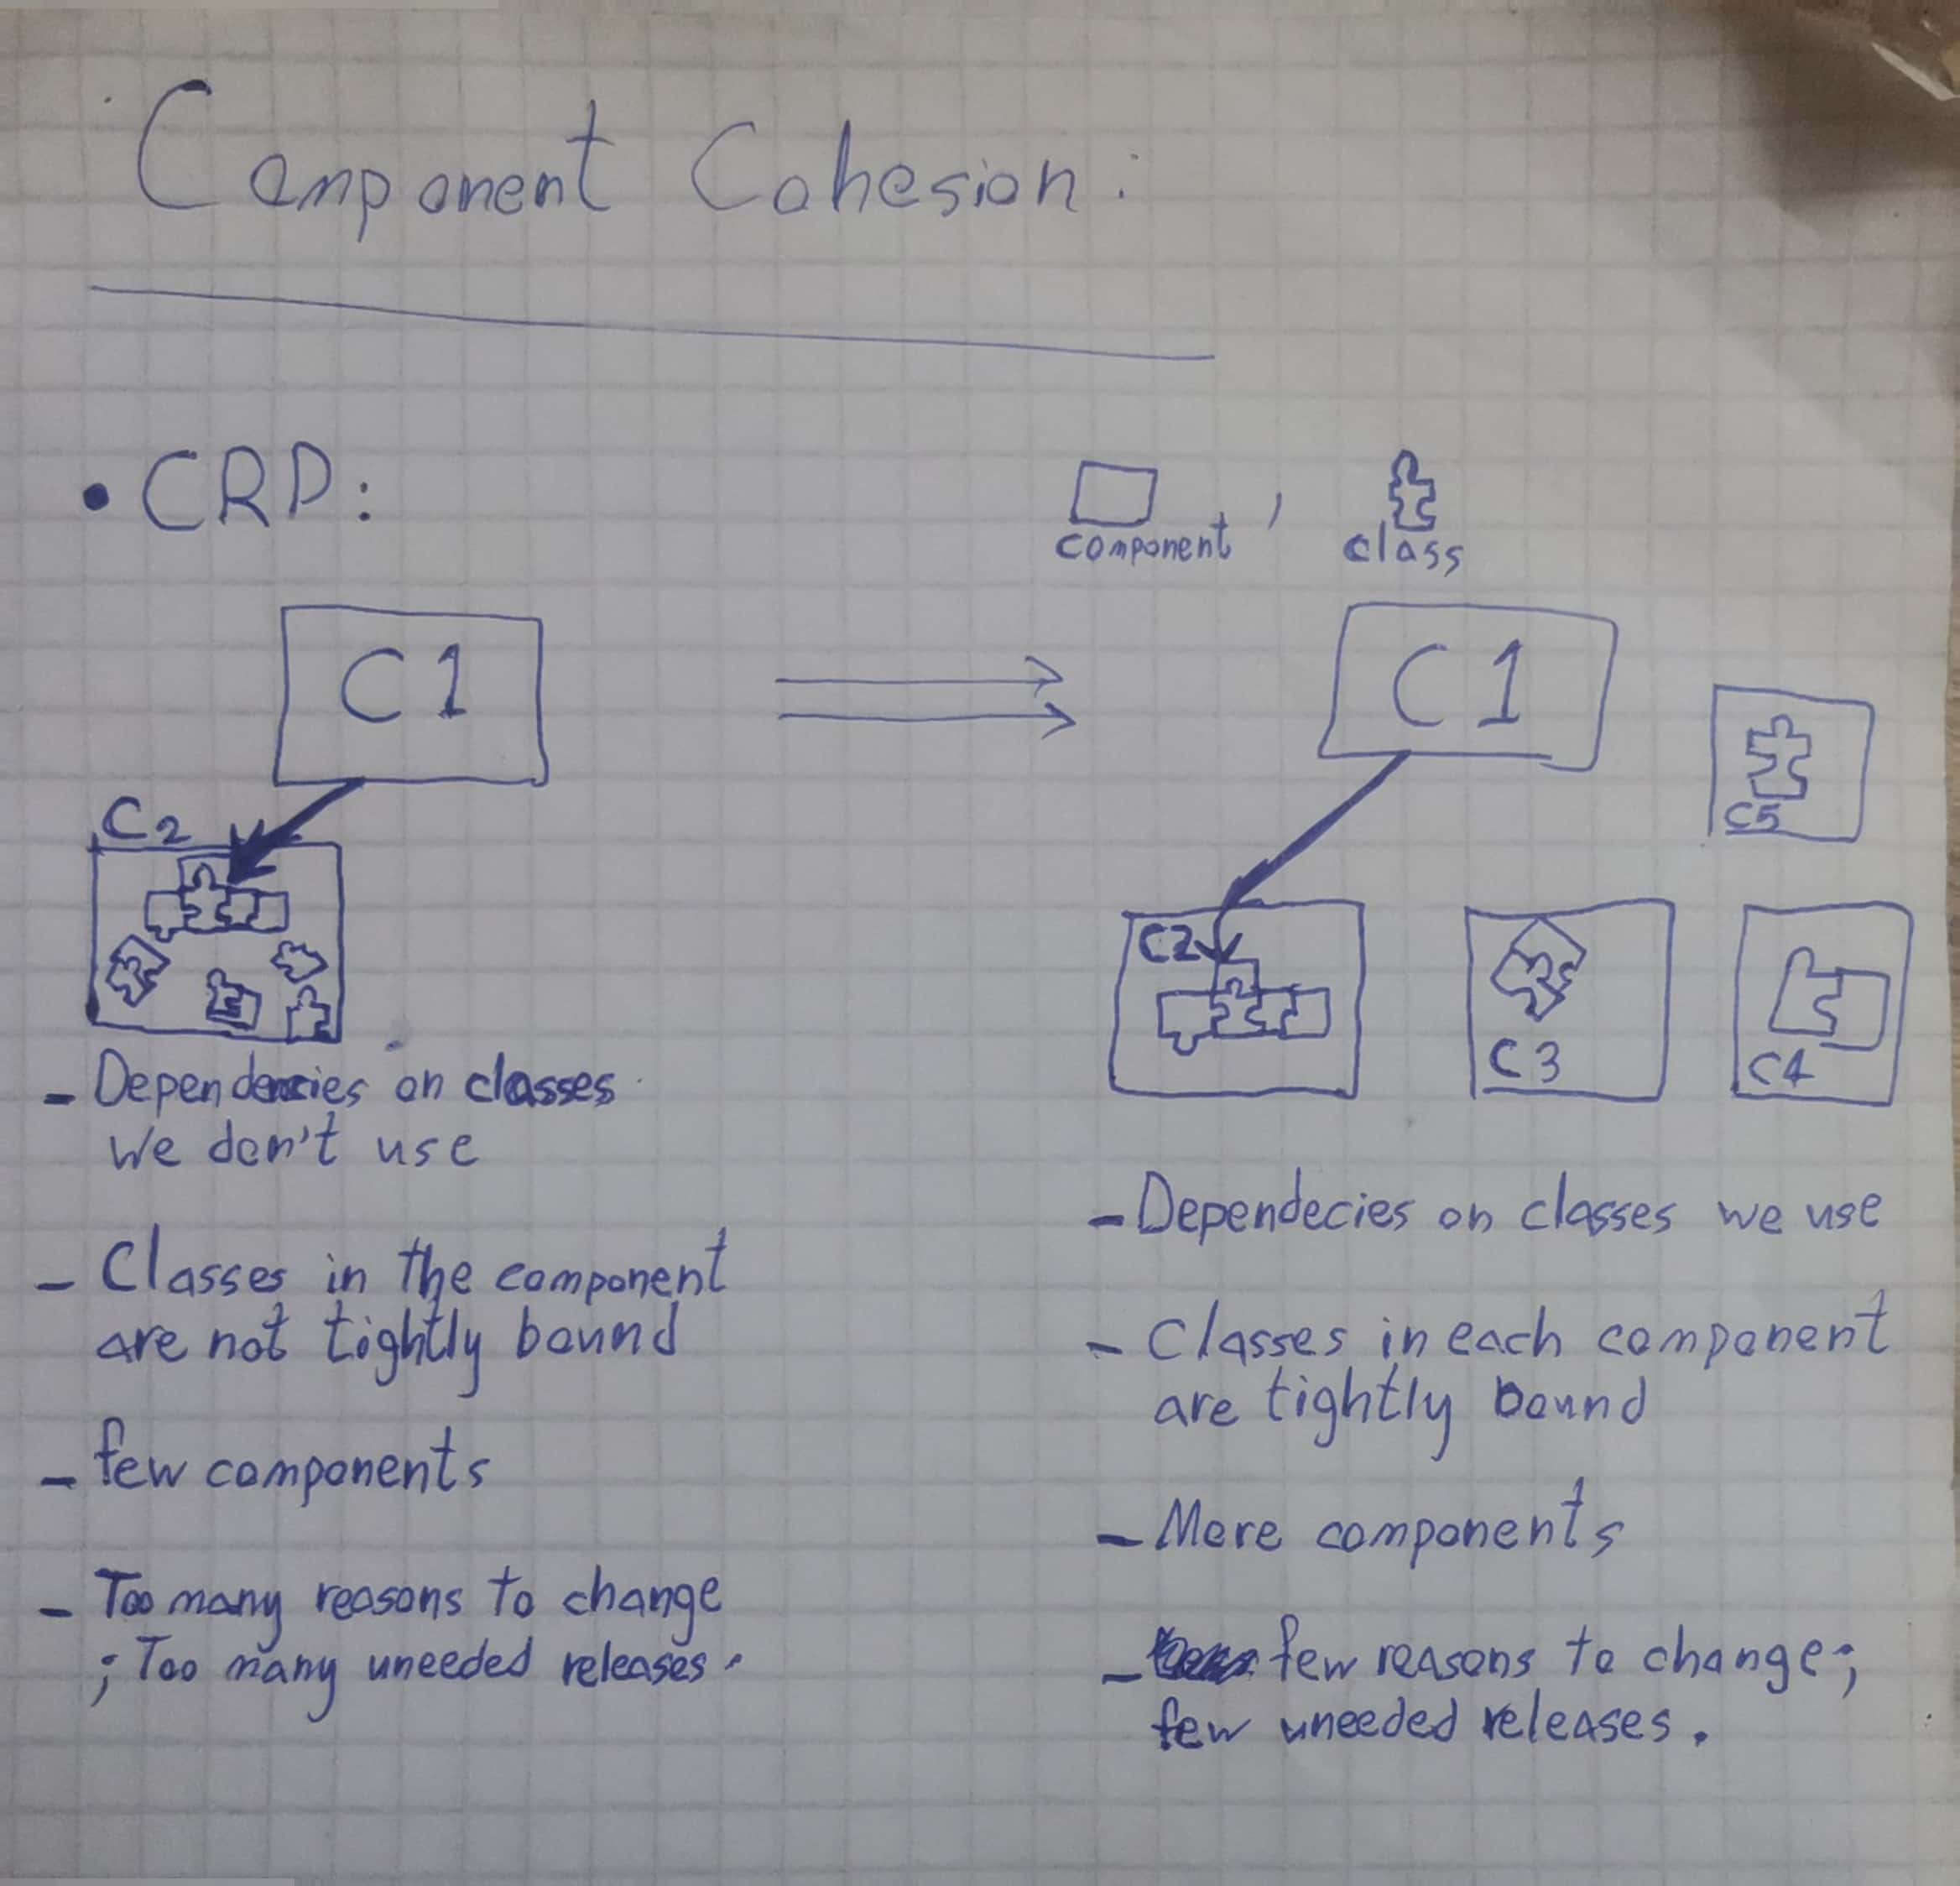 Component Cohesion:
• CRP:
component , class
C1
C2
- Dependencies on classes
we don't use
- Classes in the component
are not tightly bound
- few components
- Too many reasons to change
; Too many uneeded releases.
C1
C5
C2
C3
C4
- Dependecies on classes we use
- Classes in each component
are tightly bound
- More components
- few reasons to change;
few uneeded releases.